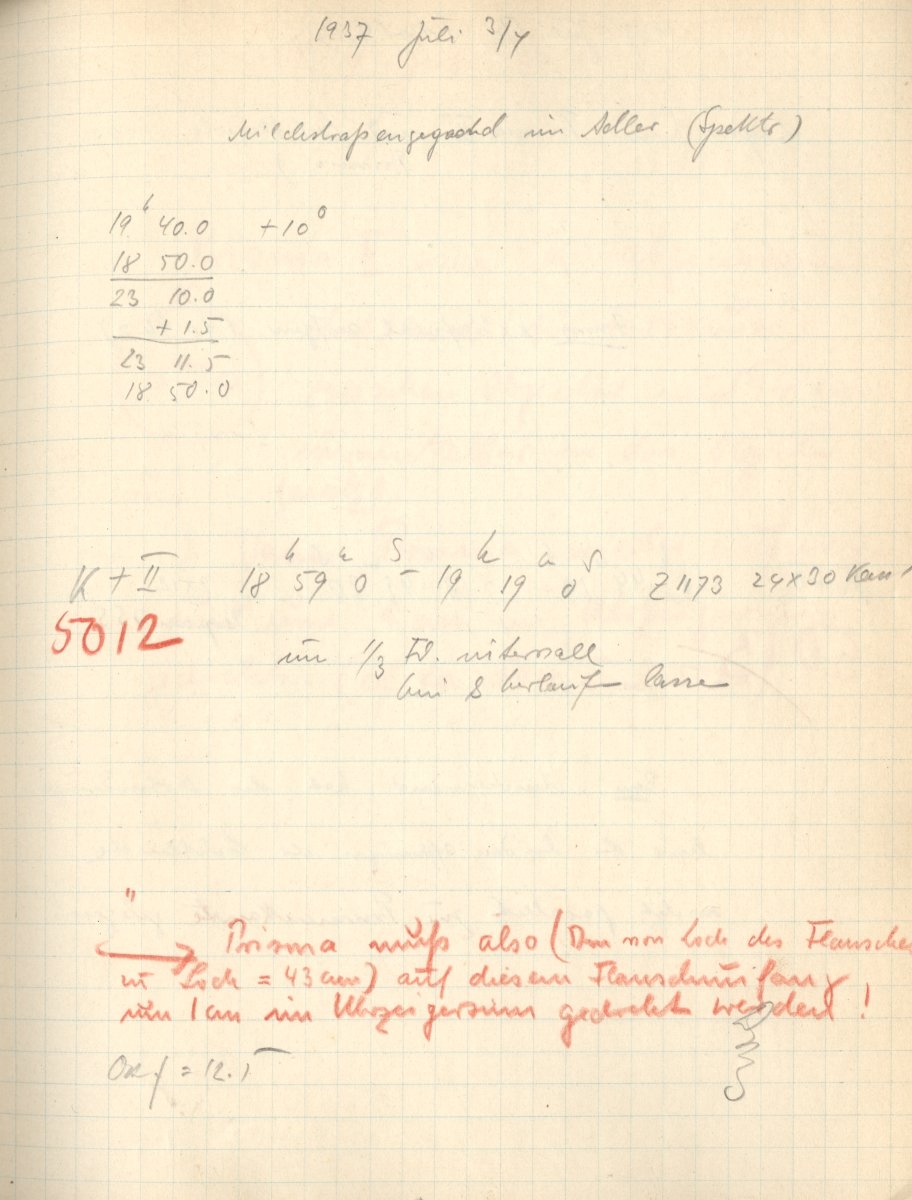 1937 Juli 3/4
Milchstraßengegend im Adler (Spektr)
19h 40.0 +10°
18 50.0
23 10.0
+ 1.5
23 11.5
18 50.0
K + II 18h 59m 0s – 19h 19m 0s Z 1173 24x30
5012
um 1/3 intervall
bei 8 verlaufen lassen
"
→ Prisma muß also (Dm von Loch des Flansches
zu Loch = 43 cm) auf diesem Flanschumfang
um 1 cm im Uhrzeigersinn gedreht werden!
Okf = 12.5